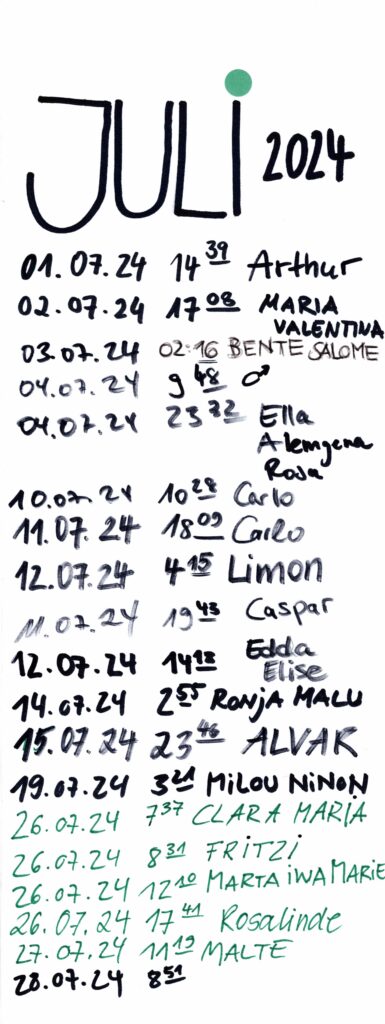 JULI 2024
01.07.24 14 39 Arthur
02.07.24 17 08 MARIA
VALENTINA
03.07.24 02:16 BENTE SALOME
04.07.24 9 48 ♂
04.07.24 23 22 Ella
Alemgena
Rosa
10.07.24 10 28 Carlo
11.07.24 18 09 Carlo
12.07.24 4 15 Limon
11.07.24 19 43 Caspar
12.07.24 14 13 Edda
Elise
14.07.24 2 55 RONJA MALU
15.07.24 23 46 ALVAR
19.07.24 3 21 MILOU NINON
26.07.24 7 37 CLARA MARIA
26.07.24 8 31 FRITZI
26.07.24 12 10 MARTA IWA MARIE
26.07.24 17 41 Rosalinde
27.07.24 11 19 MALTE
28.07.24 8 51